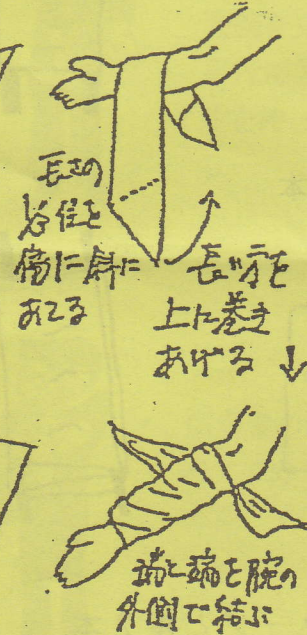 長さの
谷位を
傷に斜に
あてる
長い方を
上に巻き
あげる
端と端を腕の
外側で結ぶ